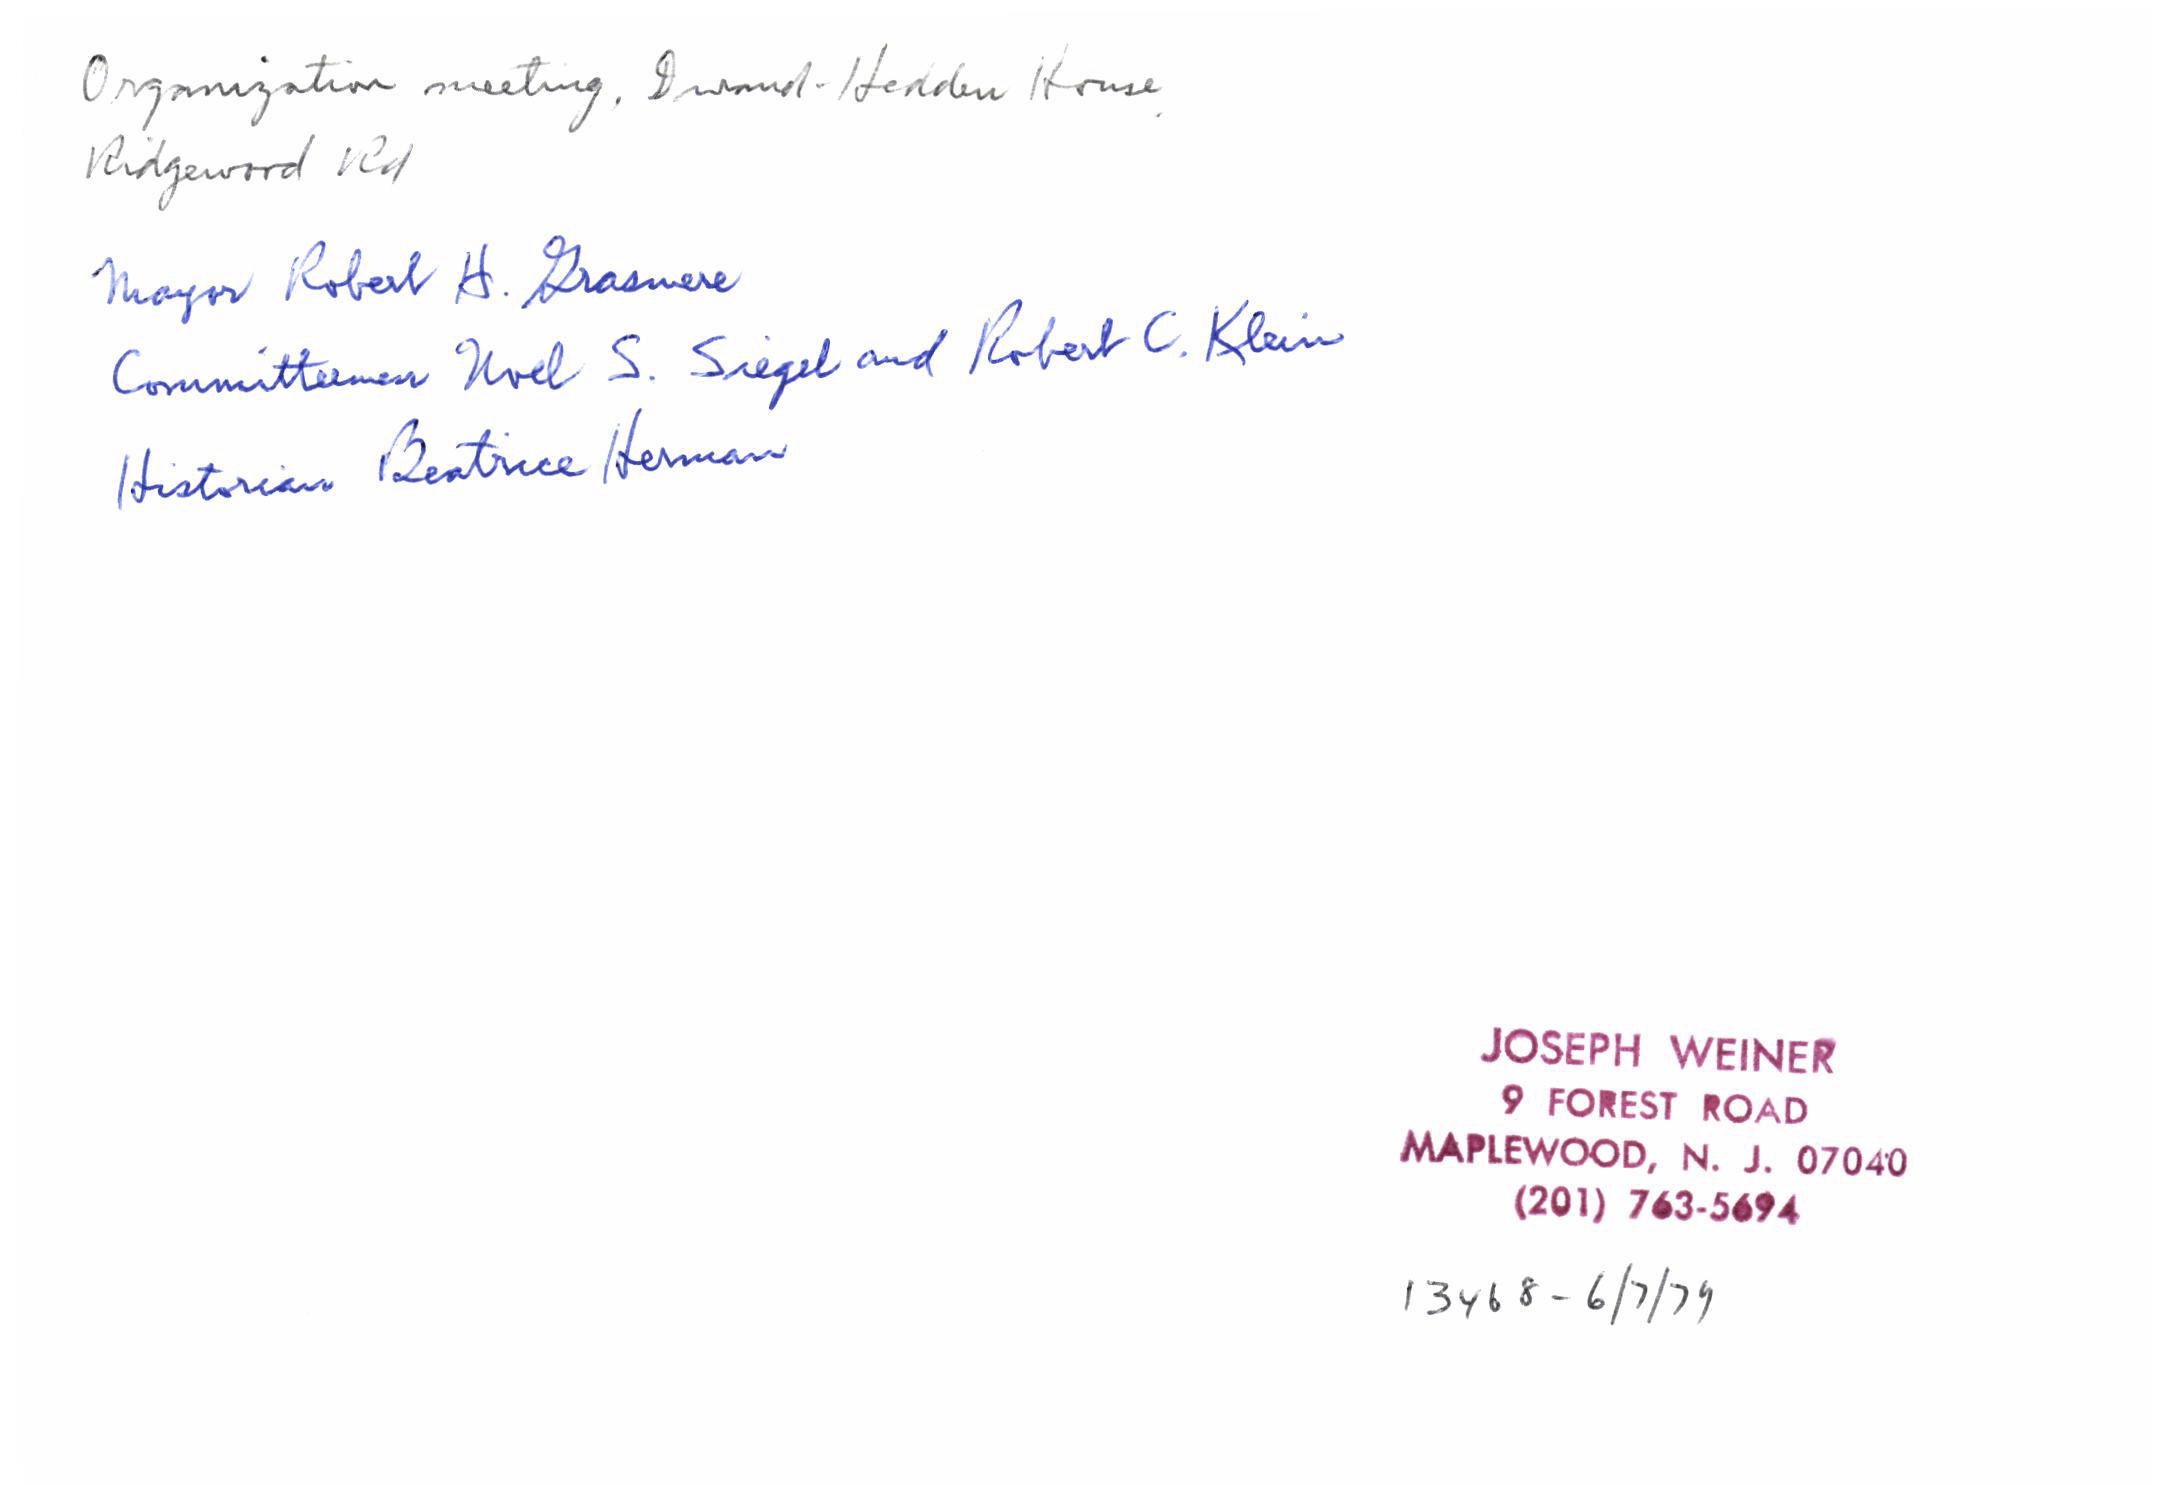 Organization meeting, Durand-Hedden House,
Ridgewood Rd
Mayor Robert H. Grasmere
Committeemen Noel S. Siegel and Robert C. Klein
Historian Beatrice Herman
JOSEPH WEINER
9 FOREST ROAD
MAPLEWOOD, N. J. 07040
(201) 763-5694
13468 - 6/7/79